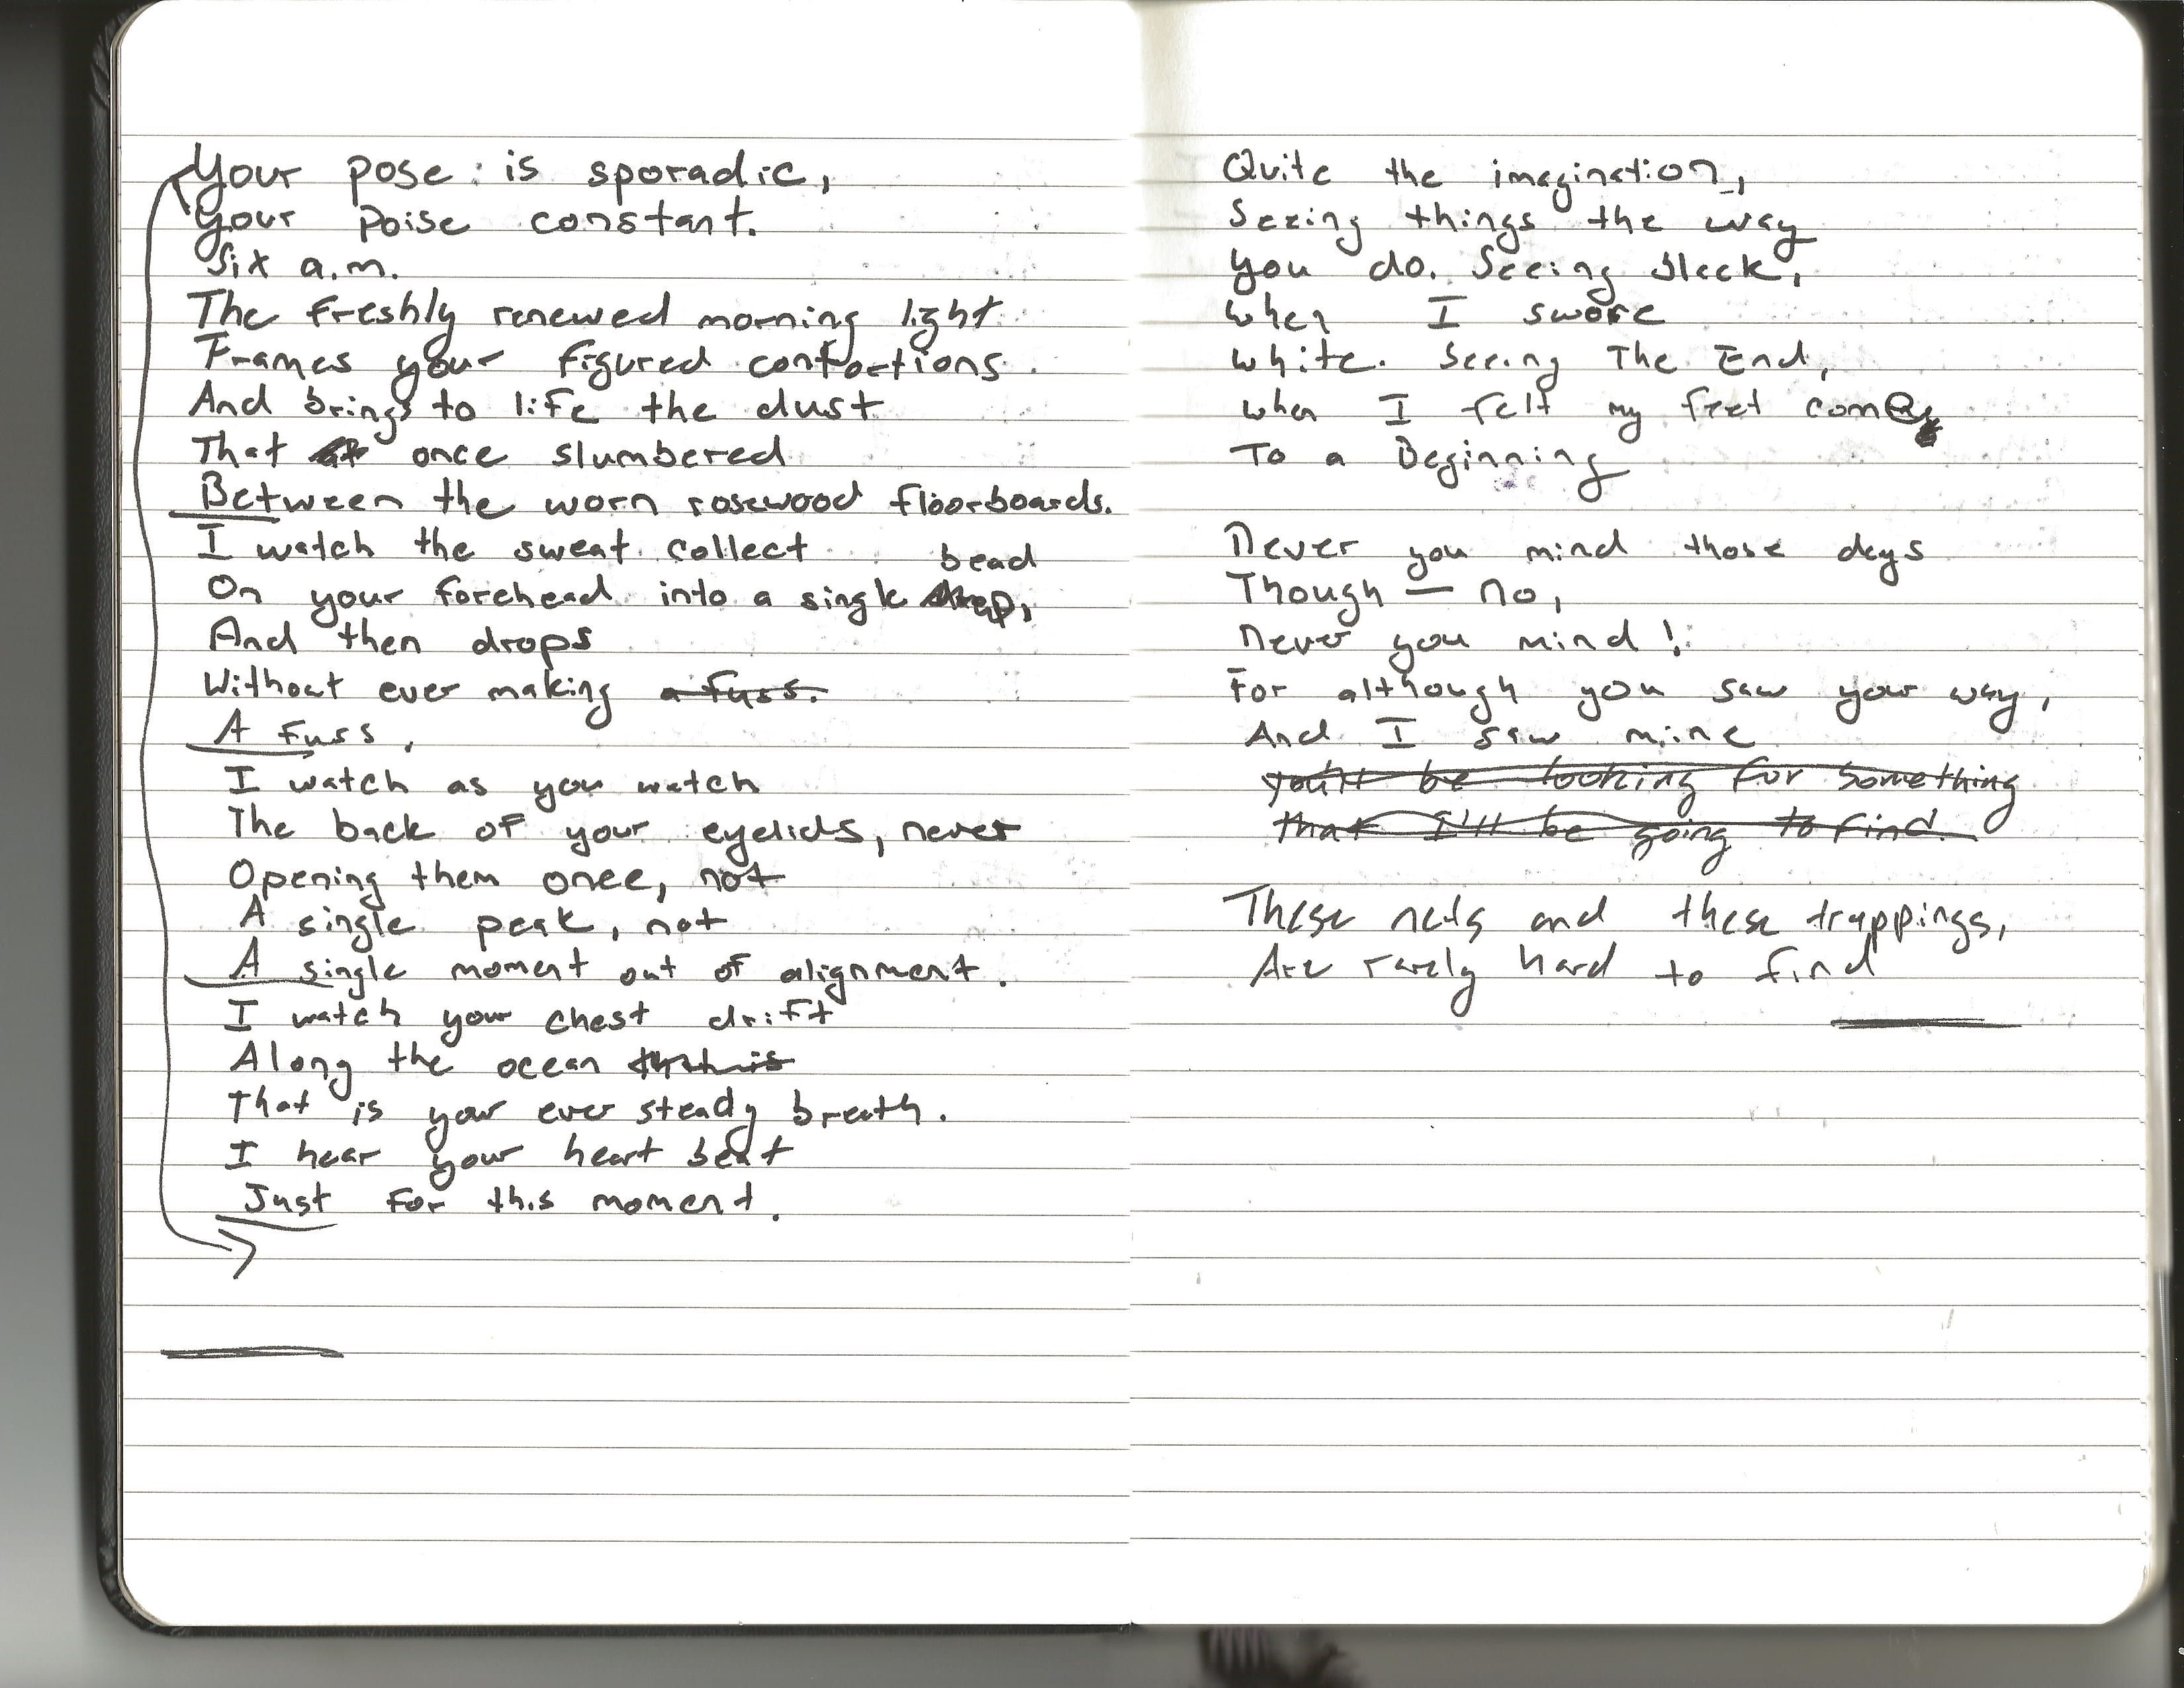 Your pose is sporadic,
Your poise constant.
Six a.m.
The freshly renewed morning light
Frames your figured contortions
And brings to life the dust
That once slumbered
Between the worn rosewood floorboards.
I watch the sweat collect
bead
On your forehead into a single drop,
And then drops
Without ever making a fuss.
A fuss.
I watch as you watch
The back of your eyelids, never
Opening them once, not
A single peak, not
A single moment out of alignment.
I watch your chest drift
Along the ocean that is
That is your ever steady breath.
I hear your heart beat
Just for this moment.
Quite the imagination,
Seeing things the way
You do. Seeing Black,
When I swore
White. Seeing The End,
When I felt my feet come
To a Beginning
Never you mind those days
Though — no,
Never you mind!
For although you saw your way,
And I saw mine
you'll be looking for something
that I'll be going to find.
These nets and these trappings,
Are rarely hard to find